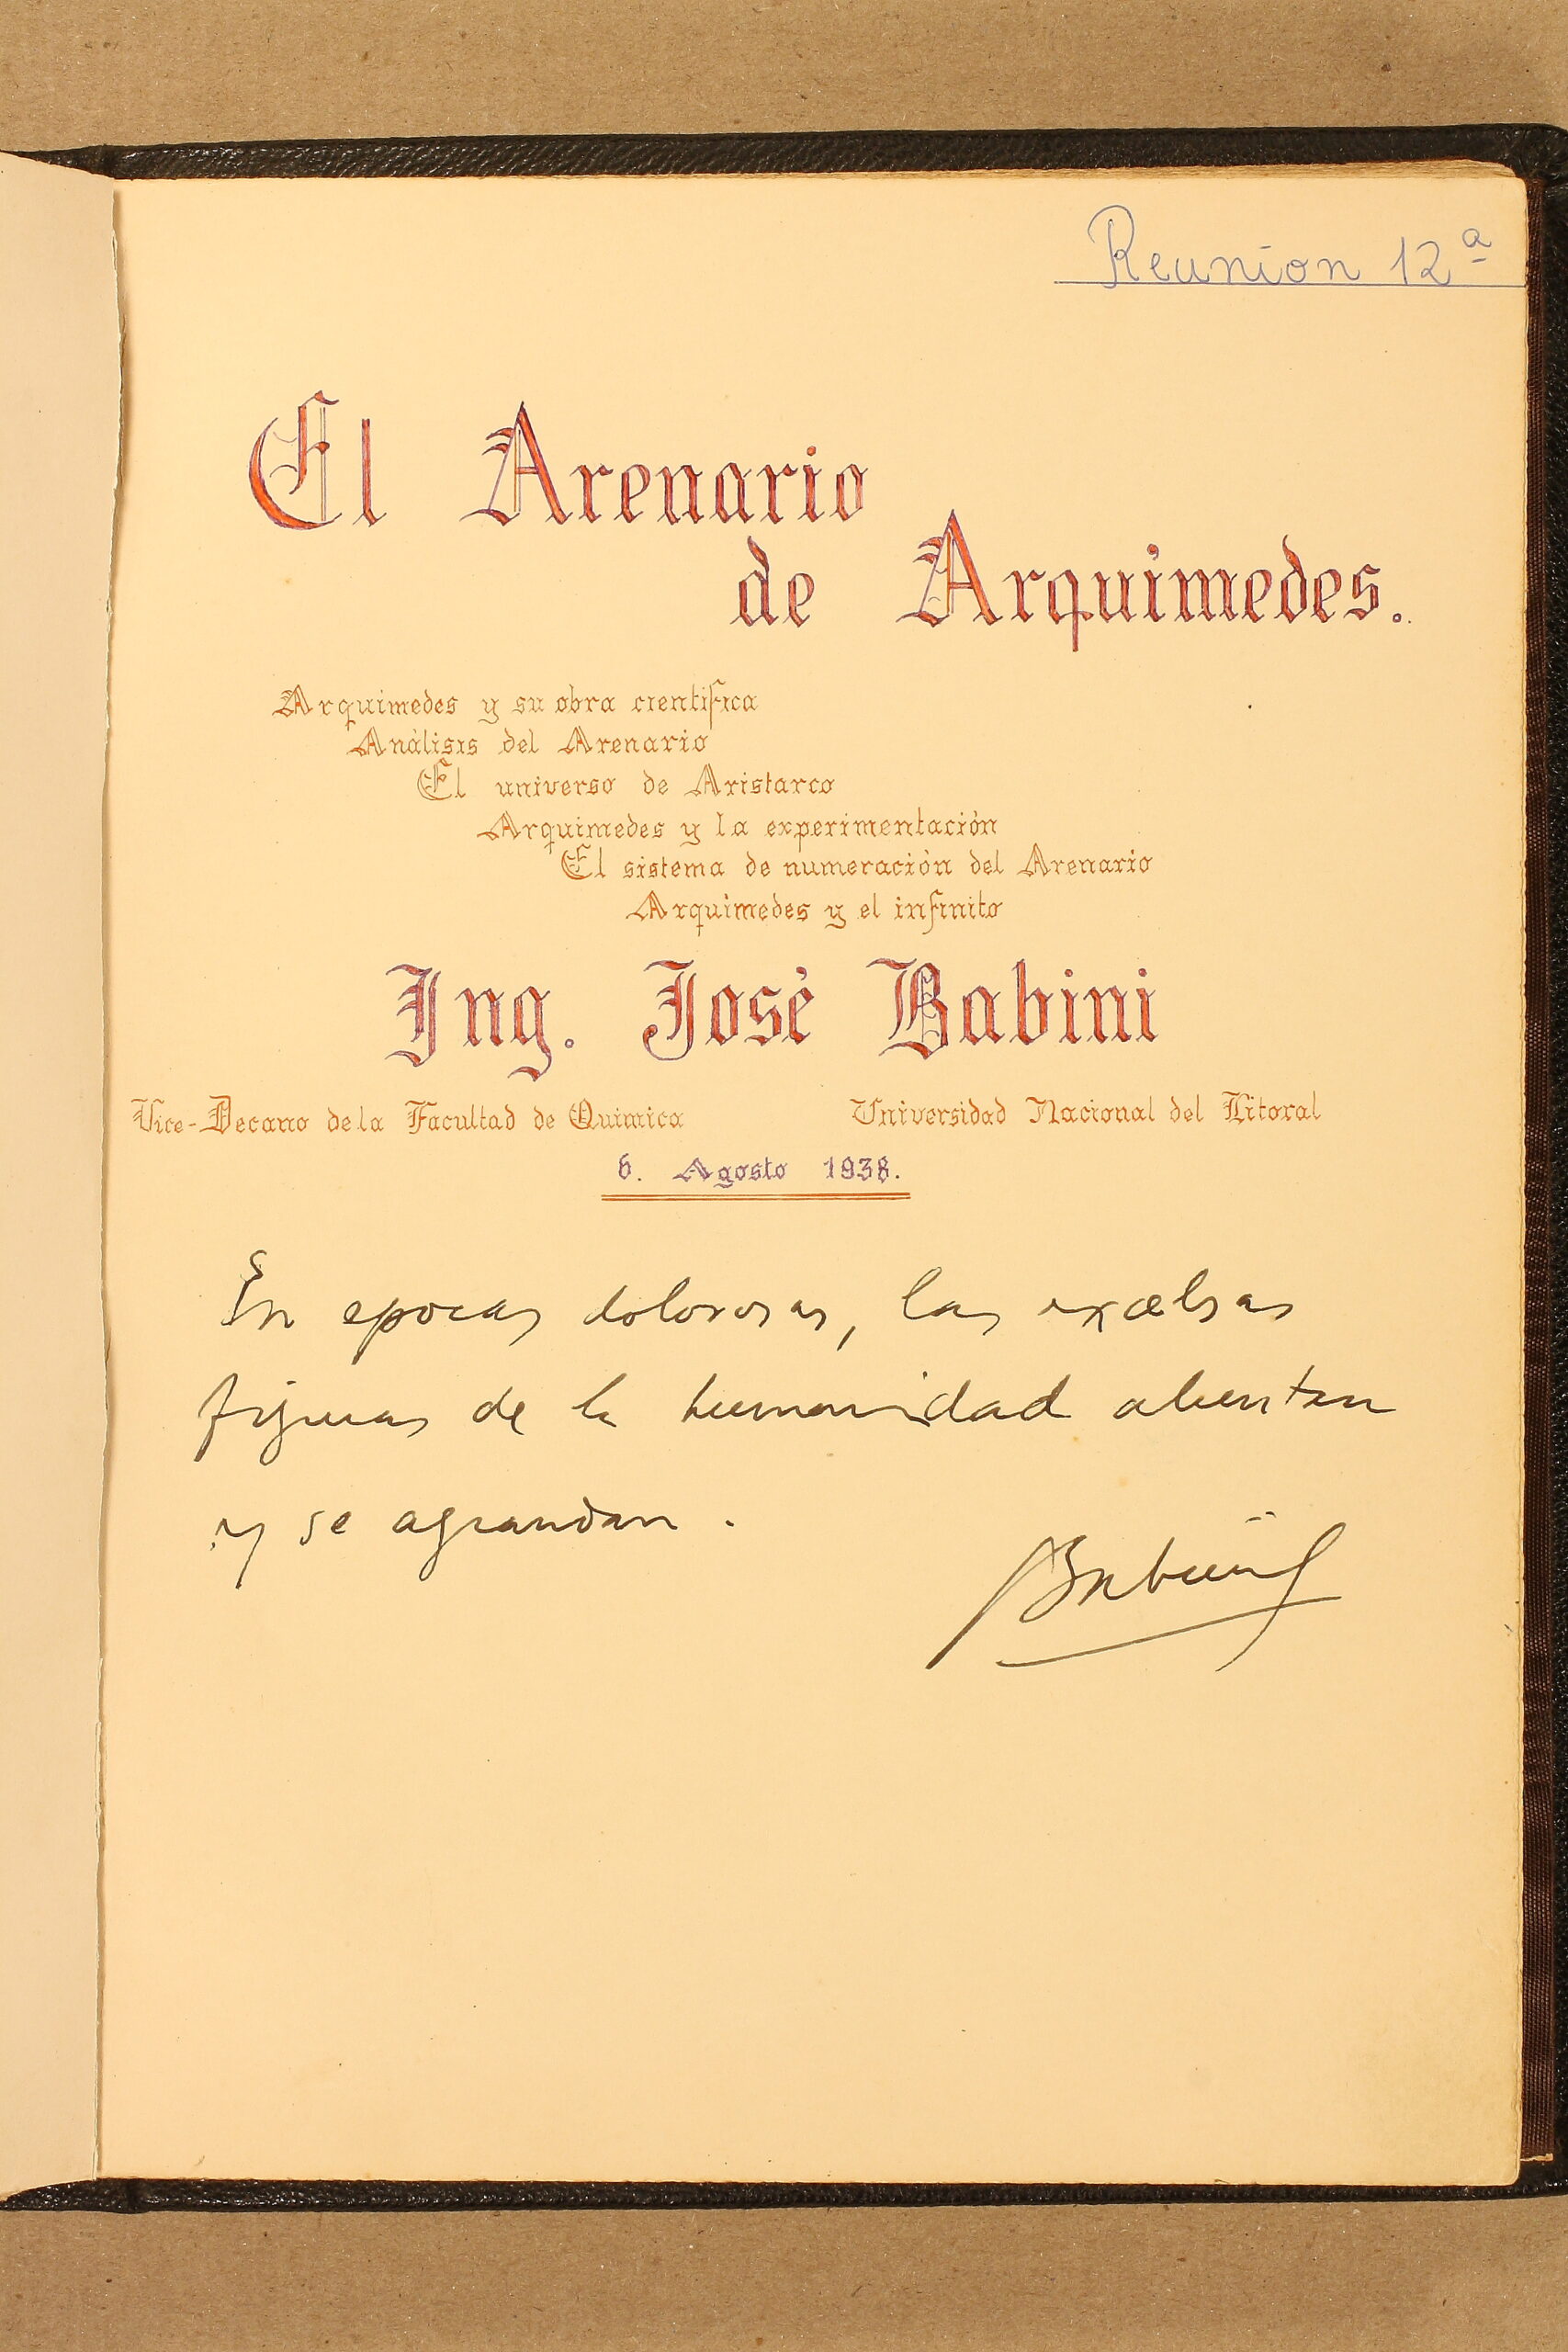 Reunion 12ª
El Arenario
de Arquimedes.
Arquimedes y su obra cientifica
Análisis del Arenario
El universo de Aristarco
Arquimedes y la experimentación
El sistema de numeración del Arenario
Arquimedes y el infinito
Ing. José Babini
Vice-Decano de la Facultad de Quimica Universidad Nacional del Litoral
6. Agosto 1938.
En epocas dolorosas, las excelsas
figuras de la humanidad alientan
y se agrandan.
Babini